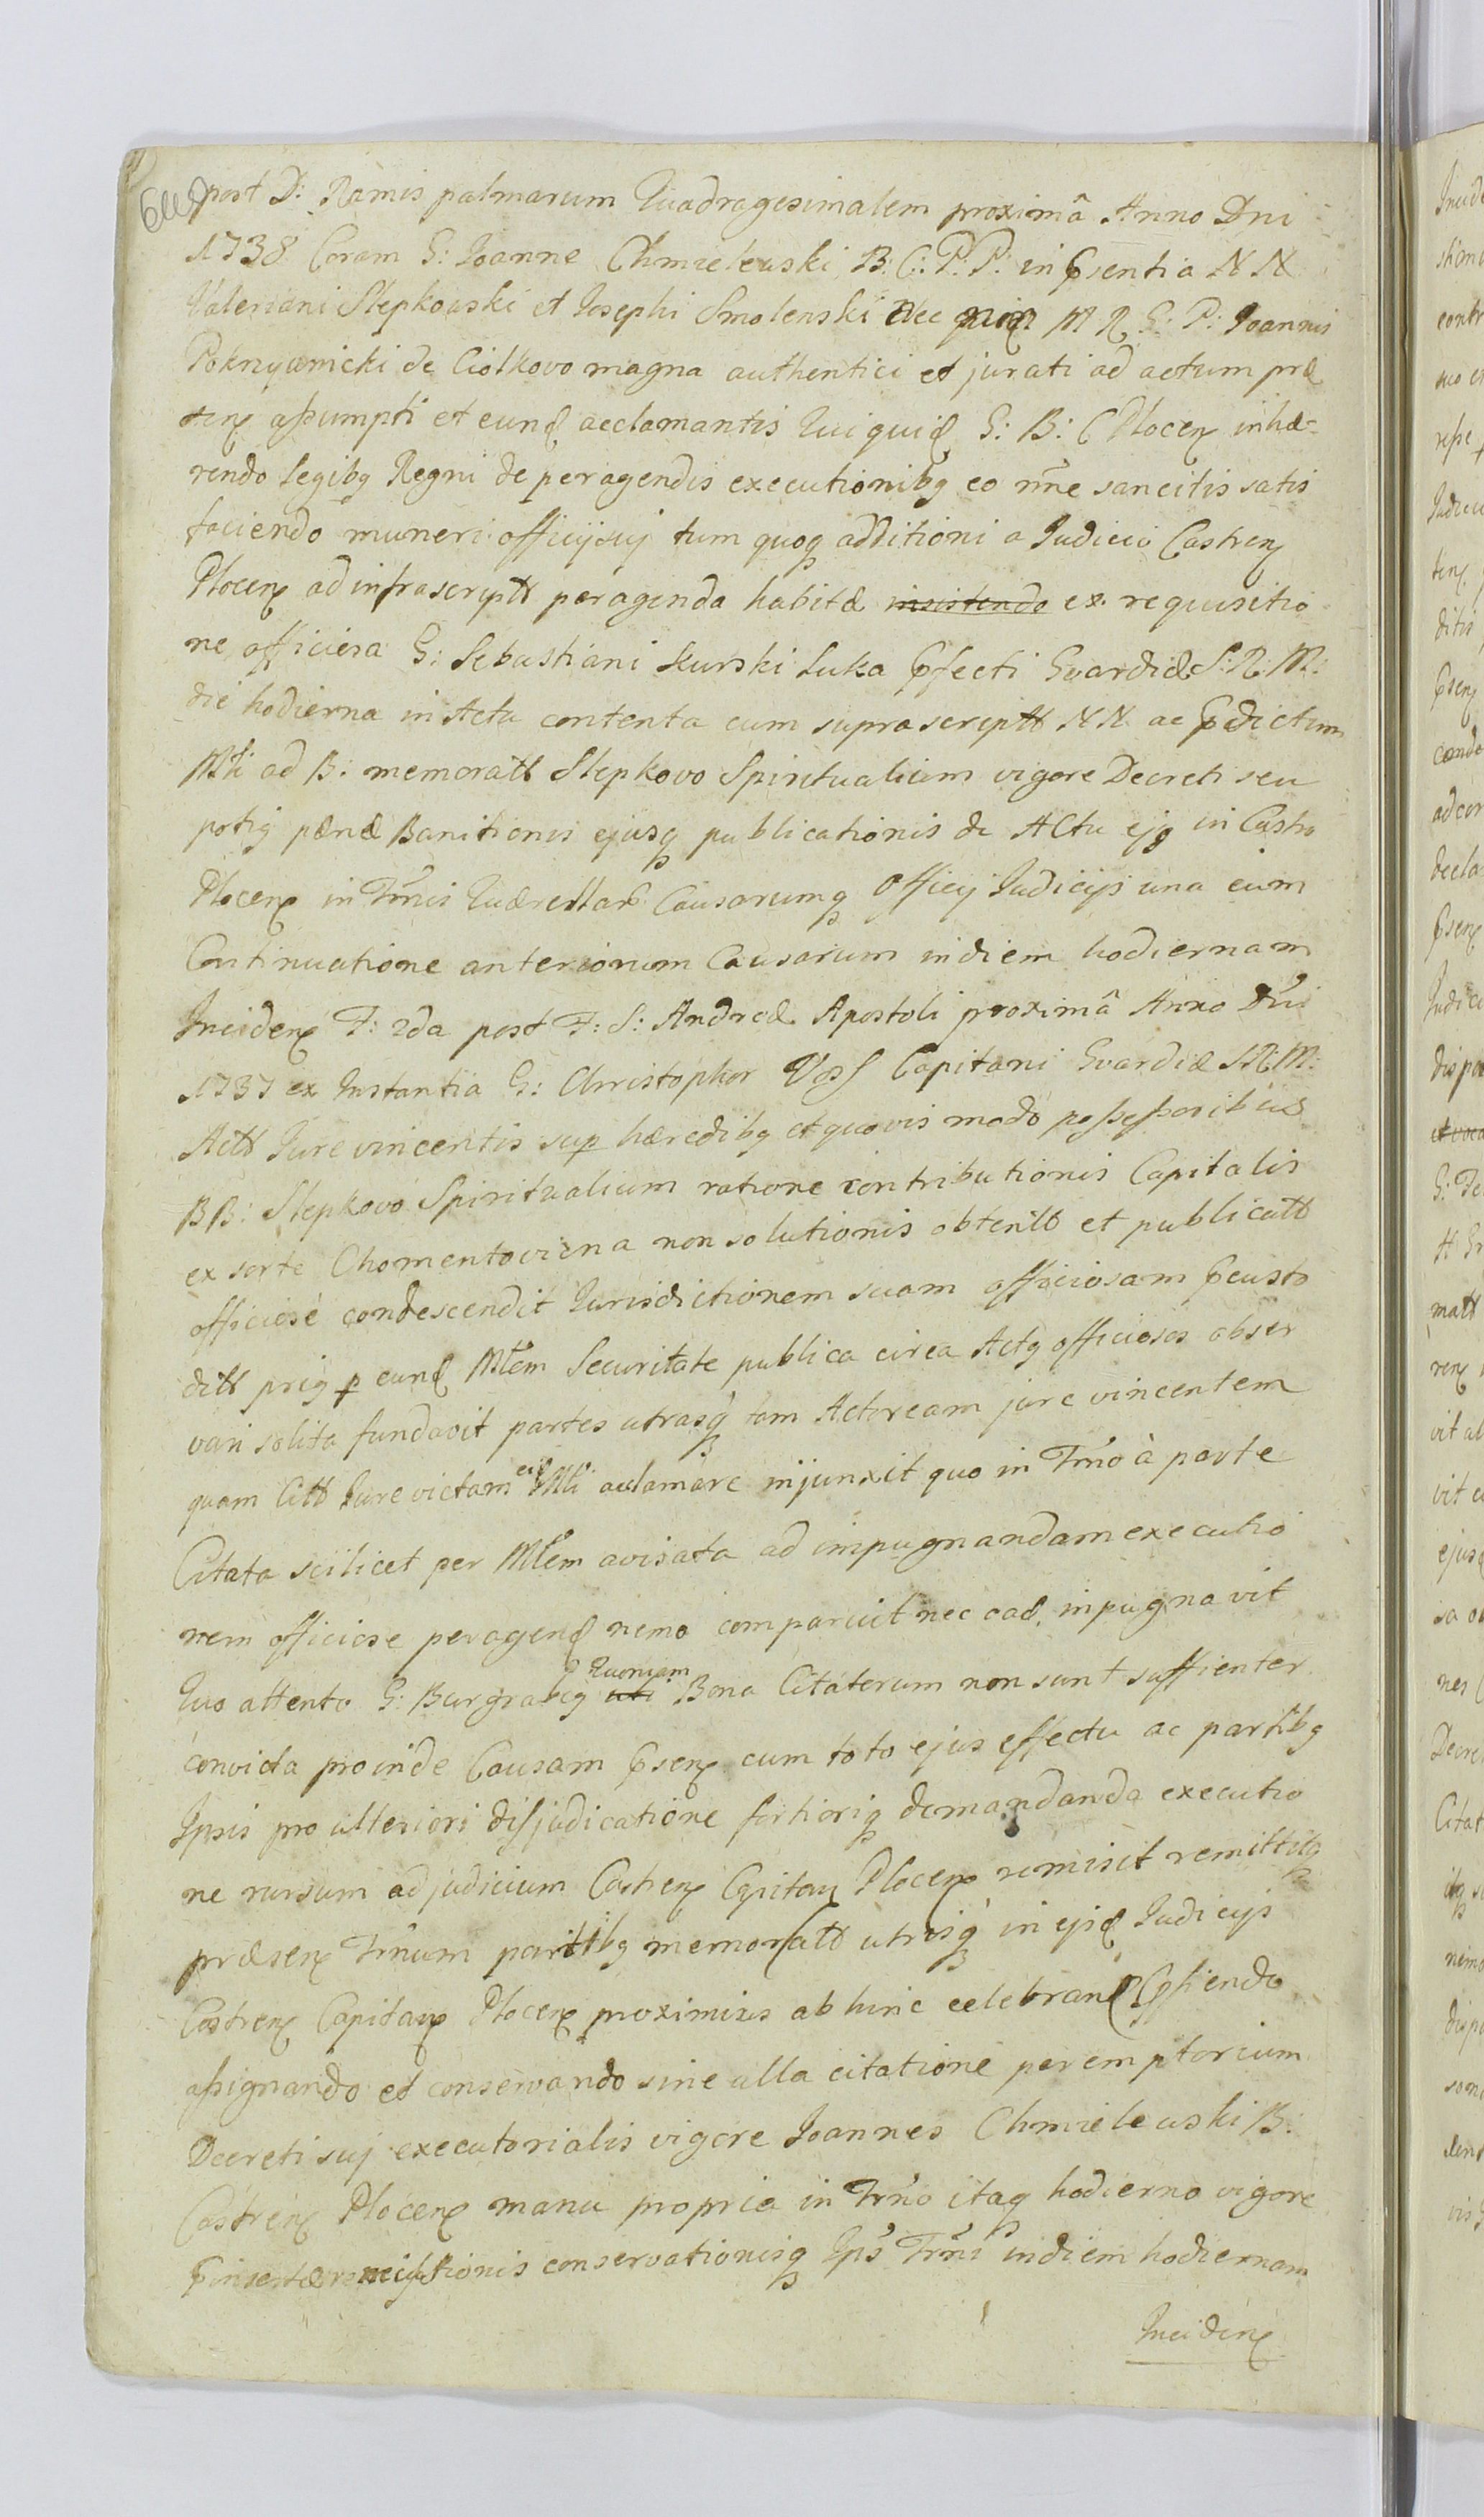 post D: Ramis palmarum Quadragesimalem proximâ Anno Dni
1738 Coram G: Joanne Chmielewski B: C: P: P: in Psentia N N
Valeriani Slepkowski et Josephi Smolenski nec M R G: P: Joannis
de Ciolkovo magna authentici et jurati ad actum præ
sen assumpti et eund acclamantis Qui quid G: B: C Plocen inhæ-
rendo Legibq Regni de peragendis executionibq eo nne sancitis satis
faciendo muneri officij suj tum quoq additioni a Judicio Castren
Plocen ad infrascriptt peragenda habitæ insistendo ex requisitio
ne officiera G: Sebastiani Kurski Luka Pfecti Gvardiæ S: R: M:
die hodierna in Actu contenta cum suprascriptt N N. ac Pdictum
Mli ad B: memoratt Slepkovo Spiritualium vigore Decreti seu
potig pænæ Banitionis ejusq publicationis de Actu ejg in Castro
Plocen in Trnis Quærellar Causarumq Officij Judicijs una cum
Continuatione anteriorum Causarum in diem hodiernam
Inciden F: 2da post F: S: Andreæ Apostoli proximâ Anno Dni
1737 ex Instantia G: Christophor Voss Capitani Gvardiæ S R: M:
Actt Jure vincentis sup hæredibq et quovis modo possessoribus
B B: Slepkovo Spiritualium ratione contributionis Capitalis
ex sorte Chomentoviena non solutionis obtentt et publicatt
officiose condescendit Jurisdictionem suam officiosam Pcusto
ditt prig p eund Mlem Securitate publica circa Actq officiosos obser
vari solita fundavit partes utrasq tam Actoream jure vincentem
quam Citt Jure victam eid Mli aclamare injunxit quo in Trno à parte
Citata scilicet per Mlem avisata ad impugnandam executio
nem officiose peragend nemo comparuit nec ead inpugnavit
Quo attento G: Burgrabig uti Quoniam Bona Citatorum non sunt suffienter
convicta proinde Causam Psen cum toto ejus effectu ac partibq
Ipsis pro ulteriori disjudicatione fortioriq demandanda executio
ne rursum ad judicium Castren Capitan Plocen remisit remittitq
præsen Trnum partibq memoratt utrisq in ejsd Judicijs
Castren Capitan Plocen proximis ab hinc celebrand Pfiendo
assignando et conservando sine ulla citatione peremptorium
Decreti suj executorialis vigore Joannes Chmielewski B:
Castren Plocen manu propria in Trno itaq hodierno vigore
Pinsertæ conservationisq Ips Trni in diem hodiernam
Inciden